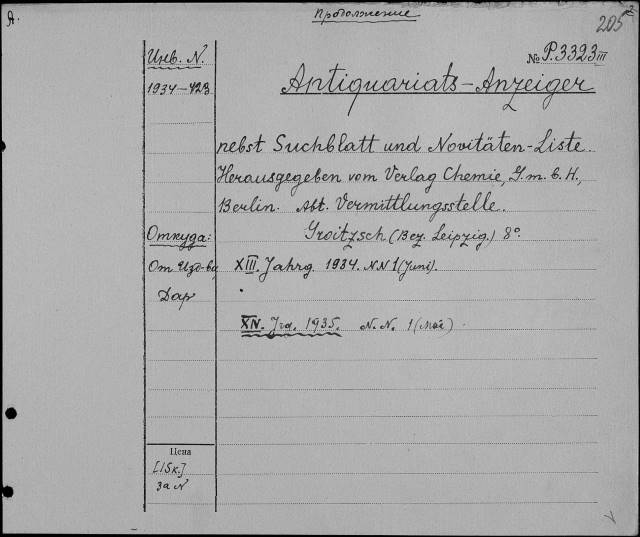 Продолжение
A.
205
Инв. N.
№ P.3323 III
1934-423
Antiquariats-Anzeiger
nebst Suchblatt und Novitäten-Liste.
Herausgegeben vom Verlag Chemie, G.m.b.H.,
Berlin. Abt. Vermittlungsstelle.
Откуда:
Groitzsch (Bez. Leipzig.) 8°.
От Изд-ва
XIII. Jahrg. 1934. N.N 1 (Juni).
Дар
XIV. Jrg. 1935. N.N. 1 (Mai)
Цена
[15к.]
за N